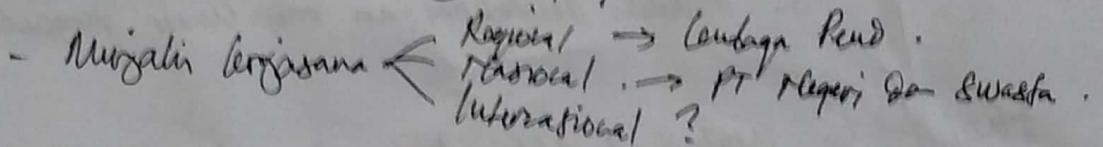 - Menjalin kerjasama < Regional → Lembaga Pend.
Nasional. → PT Negeri dan Swasta.
Internasional ?